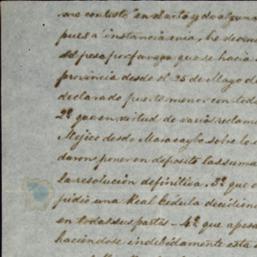 me contestó en el acto y de algun
pues a instancia mia, he deven
del peso por fanega que se hacia
provincia desde el 25 de Mayo d
declarado puerto menor con tod
2º que en virtud de varios reclam
Mejico desde Maracaybo sobre lo
daron poner en deposito las suma
la resolucion definitiva. 3º que
pidió una Real Cedula decidien
en todas sus partes. 4º que apesa
haciendose indebidamente esta